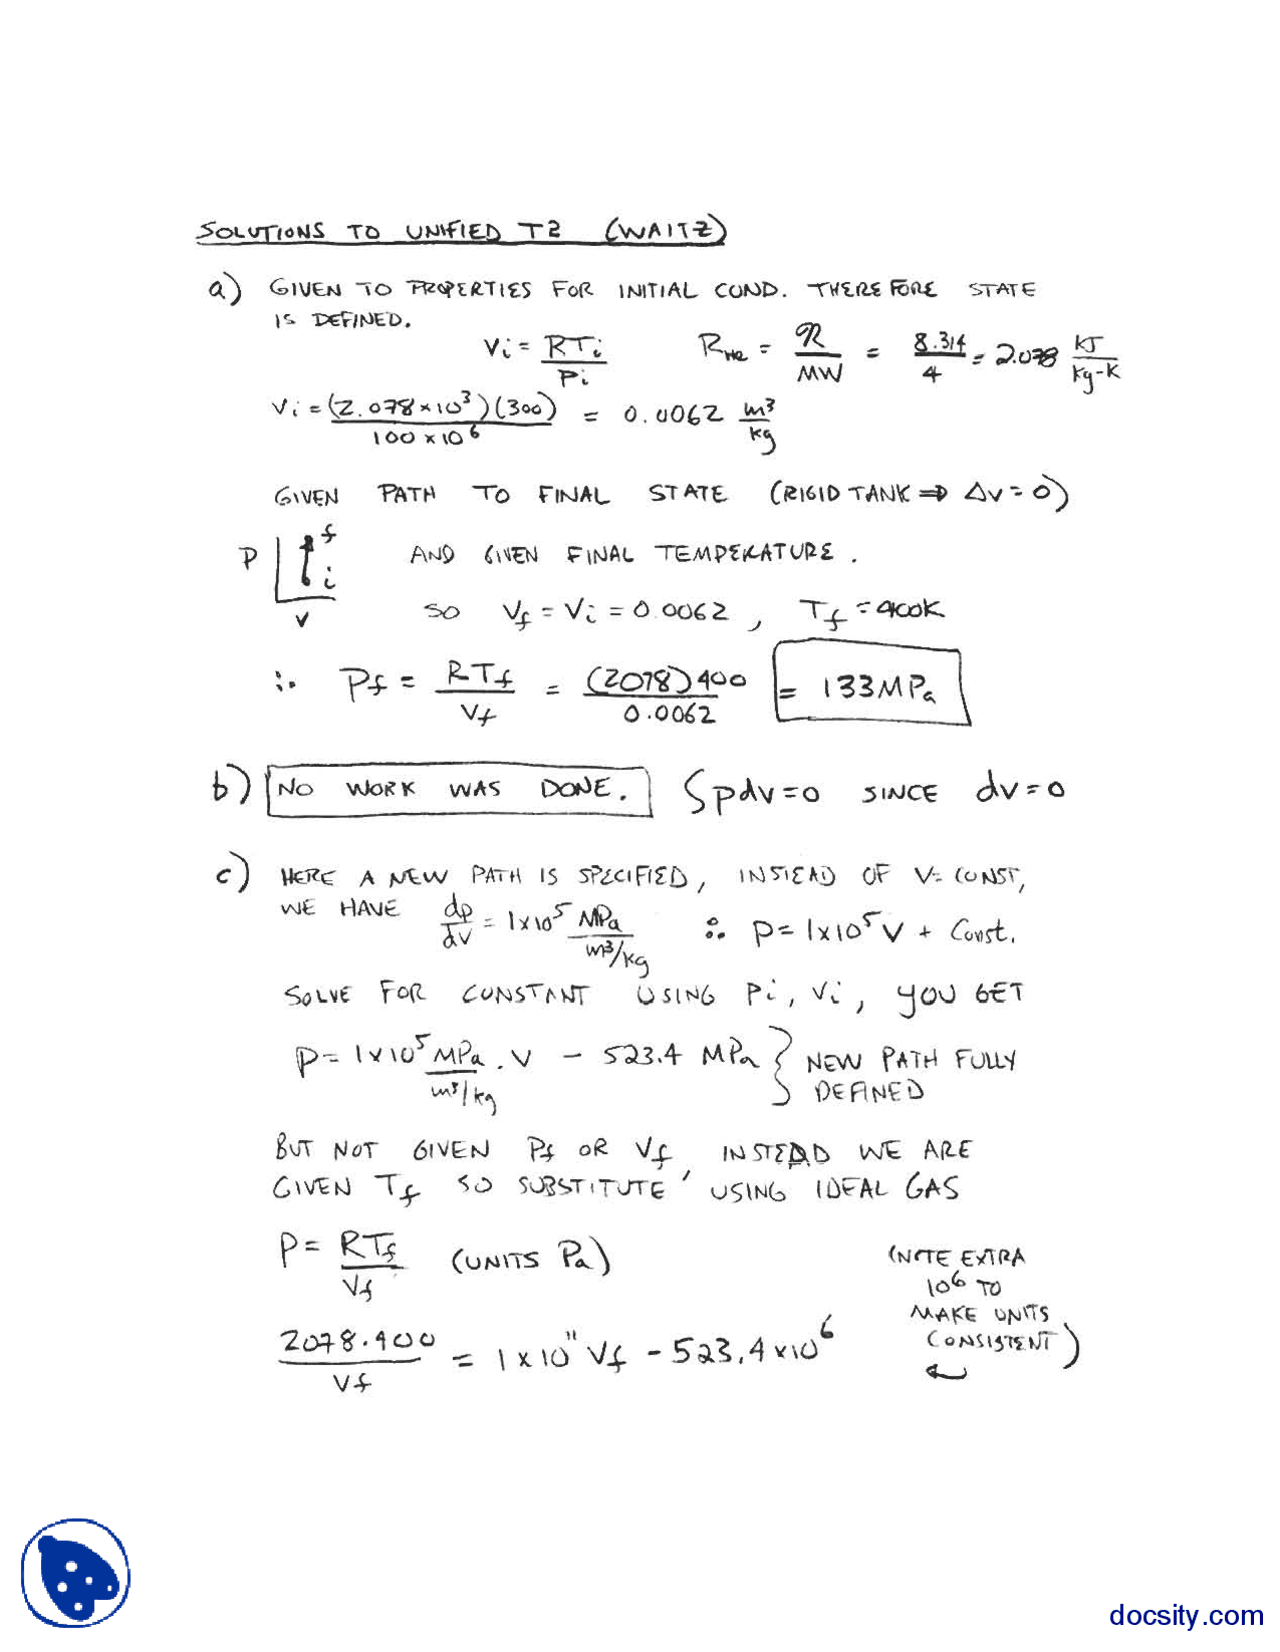 SOLUTIONS TO UNIFIED T2 (WAITZ)
a) GIVEN TO PROPERTIES FOR INITIAL COND. THEREFORE STATE
IS DEFINED.
Vi = RTi / Pi    R_He = ℛ / MW = 8.314 / 4 = 2.078 KJ / kg-K
Vi = (2.078×10³)(300) / 100×10⁶ = 0.0062 m³ / kg
GIVEN PATH TO FINAL STATE (RIGID TANK ⇒ Δv=0)
P f i v
AND GIVEN FINAL TEMPERATURE.
SO Vf = Vi = 0.0062, Tf = 400K
∴ Pf = RTf / Vf = (2078)400 / 0.0062 = 133MPa
b) NO WORK WAS DONE. ∫pdv=0 SINCE dv=0
c) HERE A NEW PATH IS SPECIFIED, INSTEAD OF V=CONST,
WE HAVE dp/dv = 1×10⁵ MPa / m³/kg ∴ P=1×10⁵V + Const.
SOLVE FOR CONSTANT USING Pi, Vi, YOU GET
P= 1×10⁵ MPa / m³/kg · V − 523.4 MPa } NEW PATH FULLY
DEFINED
BUT NOT GIVEN Pf OR Vf, INSTEAD WE ARE
GIVEN Tf SO SUBSTITUTE USING IDEAL GAS
P= RTf / Vf (UNITS Pa)
2078·400 / Vf = 1×10¹¹ Vf − 523.4×10⁶
(NOTE EXTRA
10⁶ TO
MAKE UNITS
CONSISTENT)
docsity.com